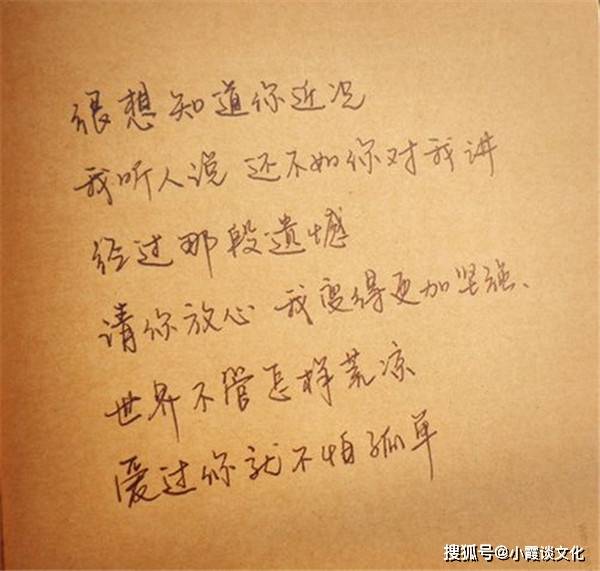 很想知道你近况
我听人说 还不如你对我讲
经过那段遗憾
请你放心 我变得更加坚强、
世界不管怎样荒凉
爱过你就不怕孤单
搜狐号@小霞谈文化